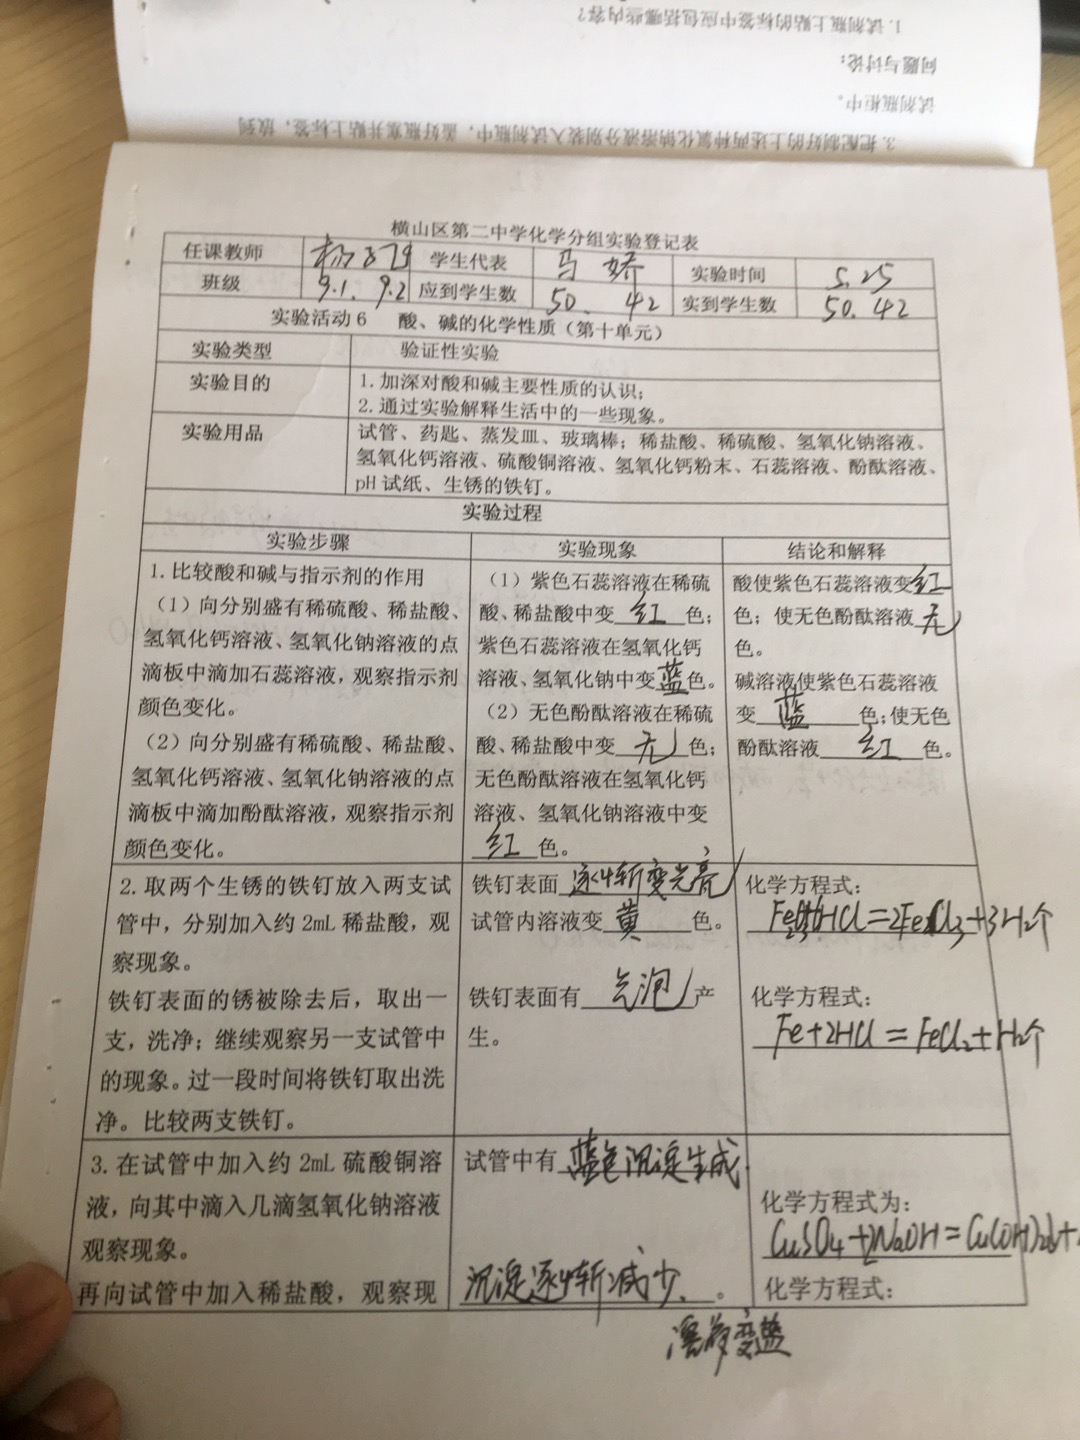 3.把配制好的上述两种氯化钠溶液分别装入试剂瓶中，盖好瓶塞并贴上标签，放到
试剂瓶柜中。
问题与讨论：
1.试剂瓶上贴的标签中应包括哪些内容？
横山区第二中学化学分组实验登记表
任课教师 学生代表 马娇 实验时间 5.25
班级 9.1. 9.2 应到学生数 50. 42 实到学生数 50. 42
实验活动6 酸、碱的化学性质（第十单元）
实验类型 验证性实验
实验目的 1.加深对酸和碱主要性质的认识；
2.通过实验解释生活中的一些现象。
实验用品 试管、药匙、蒸发皿、玻璃棒；稀盐酸、稀硫酸、氢氧化钠溶液、
氢氧化钙溶液、硫酸铜溶液、氢氧化钙粉末、石蕊溶液、酚酞溶液、
pH试纸、生锈的铁钉。
实验过程
实验步骤 实验现象 结论和解释
1.比较酸和碱与指示剂的作用
（1）向分别盛有稀硫酸、稀盐酸、
氢氧化钙溶液、氢氧化钠溶液的点
滴板中滴加石蕊溶液，观察指示剂
颜色变化。
（2）向分别盛有稀硫酸、稀盐酸、
氢氧化钙溶液、氢氧化钠溶液的点
滴板中滴加酚酞溶液，观察指示剂
颜色变化。
（1）紫色石蕊溶液在稀硫
酸、稀盐酸中变 红 色；
紫色石蕊溶液在氢氧化钙
溶液、氢氧化钠中变 蓝 色。
（2）无色酚酞溶液在稀硫
酸、稀盐酸中变 无 色；
无色酚酞溶液在氢氧化钙
溶液、氢氧化钠溶液中变
红 色。
酸使紫色石蕊溶液变 红
色；使无色酚酞溶液 无
色。
碱溶液使紫色石蕊溶液
变 蓝 色；使无色
酚酞溶液 红 色。
2.取两个生锈的铁钉放入两支试
管中，分别加入约2mL稀盐酸，观
察现象。
铁钉表面的锈被除去后，取出一
支，洗净；继续观察另一支试管中
的现象。过一段时间将铁钉取出洗
净。比较两支铁钉。
铁钉表面 逐渐变光亮
试管内溶液变 黄 色。
铁钉表面有 气泡 产
生。
化学方程式：
化学方程式：
Fe+2HCl=FeCl₂+H₂↑
3.在试管中加入约2mL硫酸铜溶
液，向其中滴入几滴氢氧化钠溶液
观察现象。
再向试管中加入稀盐酸，观察现
试管中有 蓝色沉淀生成.
沉淀逐渐减少、 。
溶液变蓝
化学方程式为：
CuSO₄+2NaOH=Cu(OH)₂↓+
化学方程式：